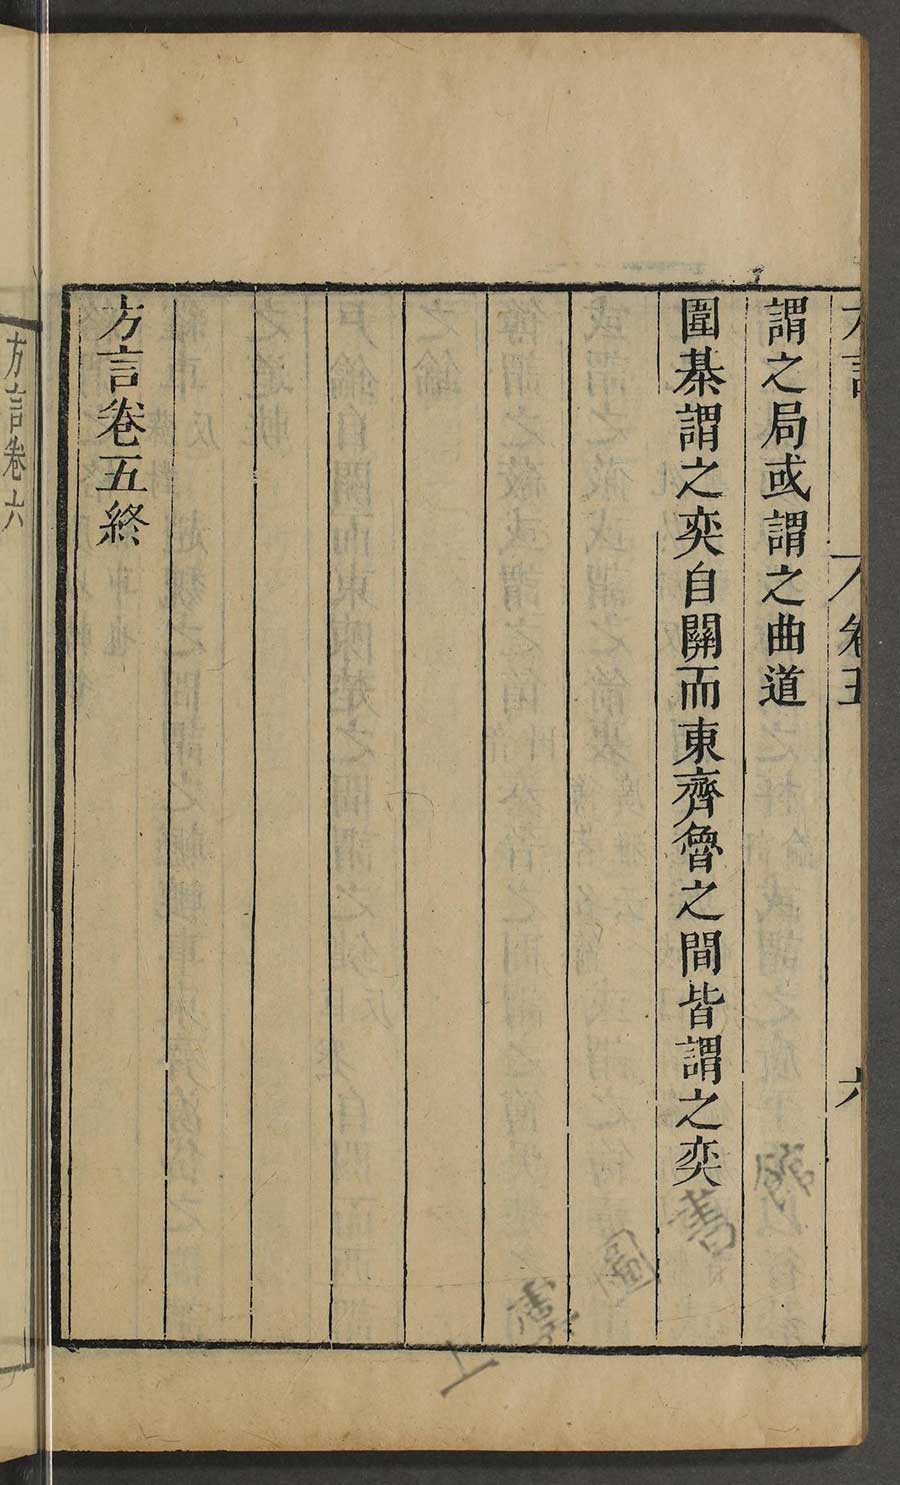 方言 卷五 六
謂之局或謂之曲道
圍棊謂之奕自關而東齊魯之間皆謂之奕
方言卷五終
方言卷六